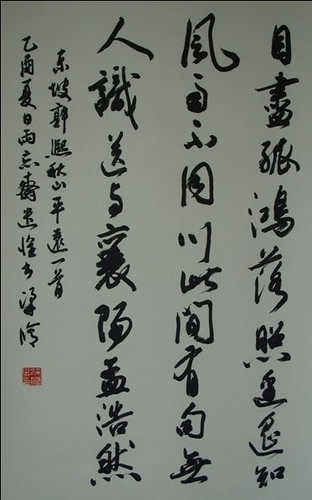 目盡孤鴻落照邊遥知
風雨不同川此間有句無
人識送与襄陽孟浩然
東坡郭熙秋山平遠一首
乙酉夏日雨